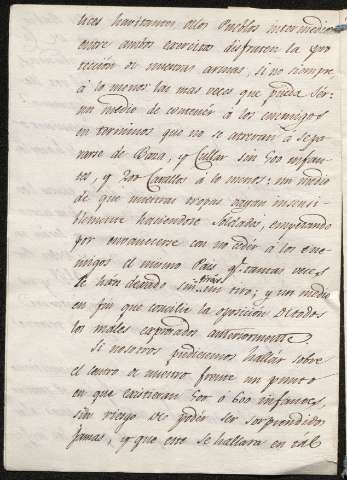 lices havitamen dellos Pueblos intermedios
entre ambos exercitos disfruten la pro
teccion de nuestras armas, si no siempre
à lo menos las mas veces que pueda ser:
un medio de contener á los enemigos
en terminos que no se atrevan á sepa
rarse de Baza, y Cullar sin 500 infan
tes, y 200 Cavallos à lo menos: un medio
de que nuestras tropas vayan insensi
blemente haciendose Soldados, empezando
por envanecerse con no ceder à los ene
migos el mismo Pais q.e tantas veces
se hán dexado sin tirar un tiro; y un medio
en fin que concilie la oposicion de todos
los males expresados anteriormente.
Si nosotros pudiesemos hallár sobre
el centro de nuestro frente un punto
en que existieran 500 ó 600 infantes
sin riesgo de poder ser sorprendidos
jamas, y que este se hallara en tal